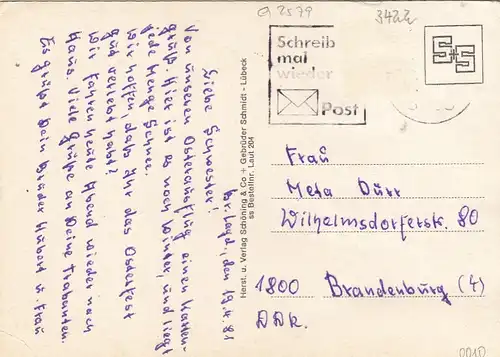 G 2579
3422
Schreib
mal
wieder
Post
Br.lagd, den 19.4.81
Liebe Schwester!
Von unserem Osterausflug einen Karten-
gruß. Hier ist es noch Winter, und liegt
jede Menge Schnee.
Wir hoffen, dass Ihr das Osterfest
gut verlebt habt?
Wir fahren heute Abend wieder nach
Haus. Viele Grüße an Deine Trabanten.
Es grüßt Dein Bruder Hubert u. Frau
Herst. u. Verlag Schöning & Co + Gebrüder Schmidt - Lübeck
ss Bestellnr. Laut. 204
Frau
Meta Dürr
Wilhelmsdorferstr. 80
1800 Brandenburg (4)
DDR.